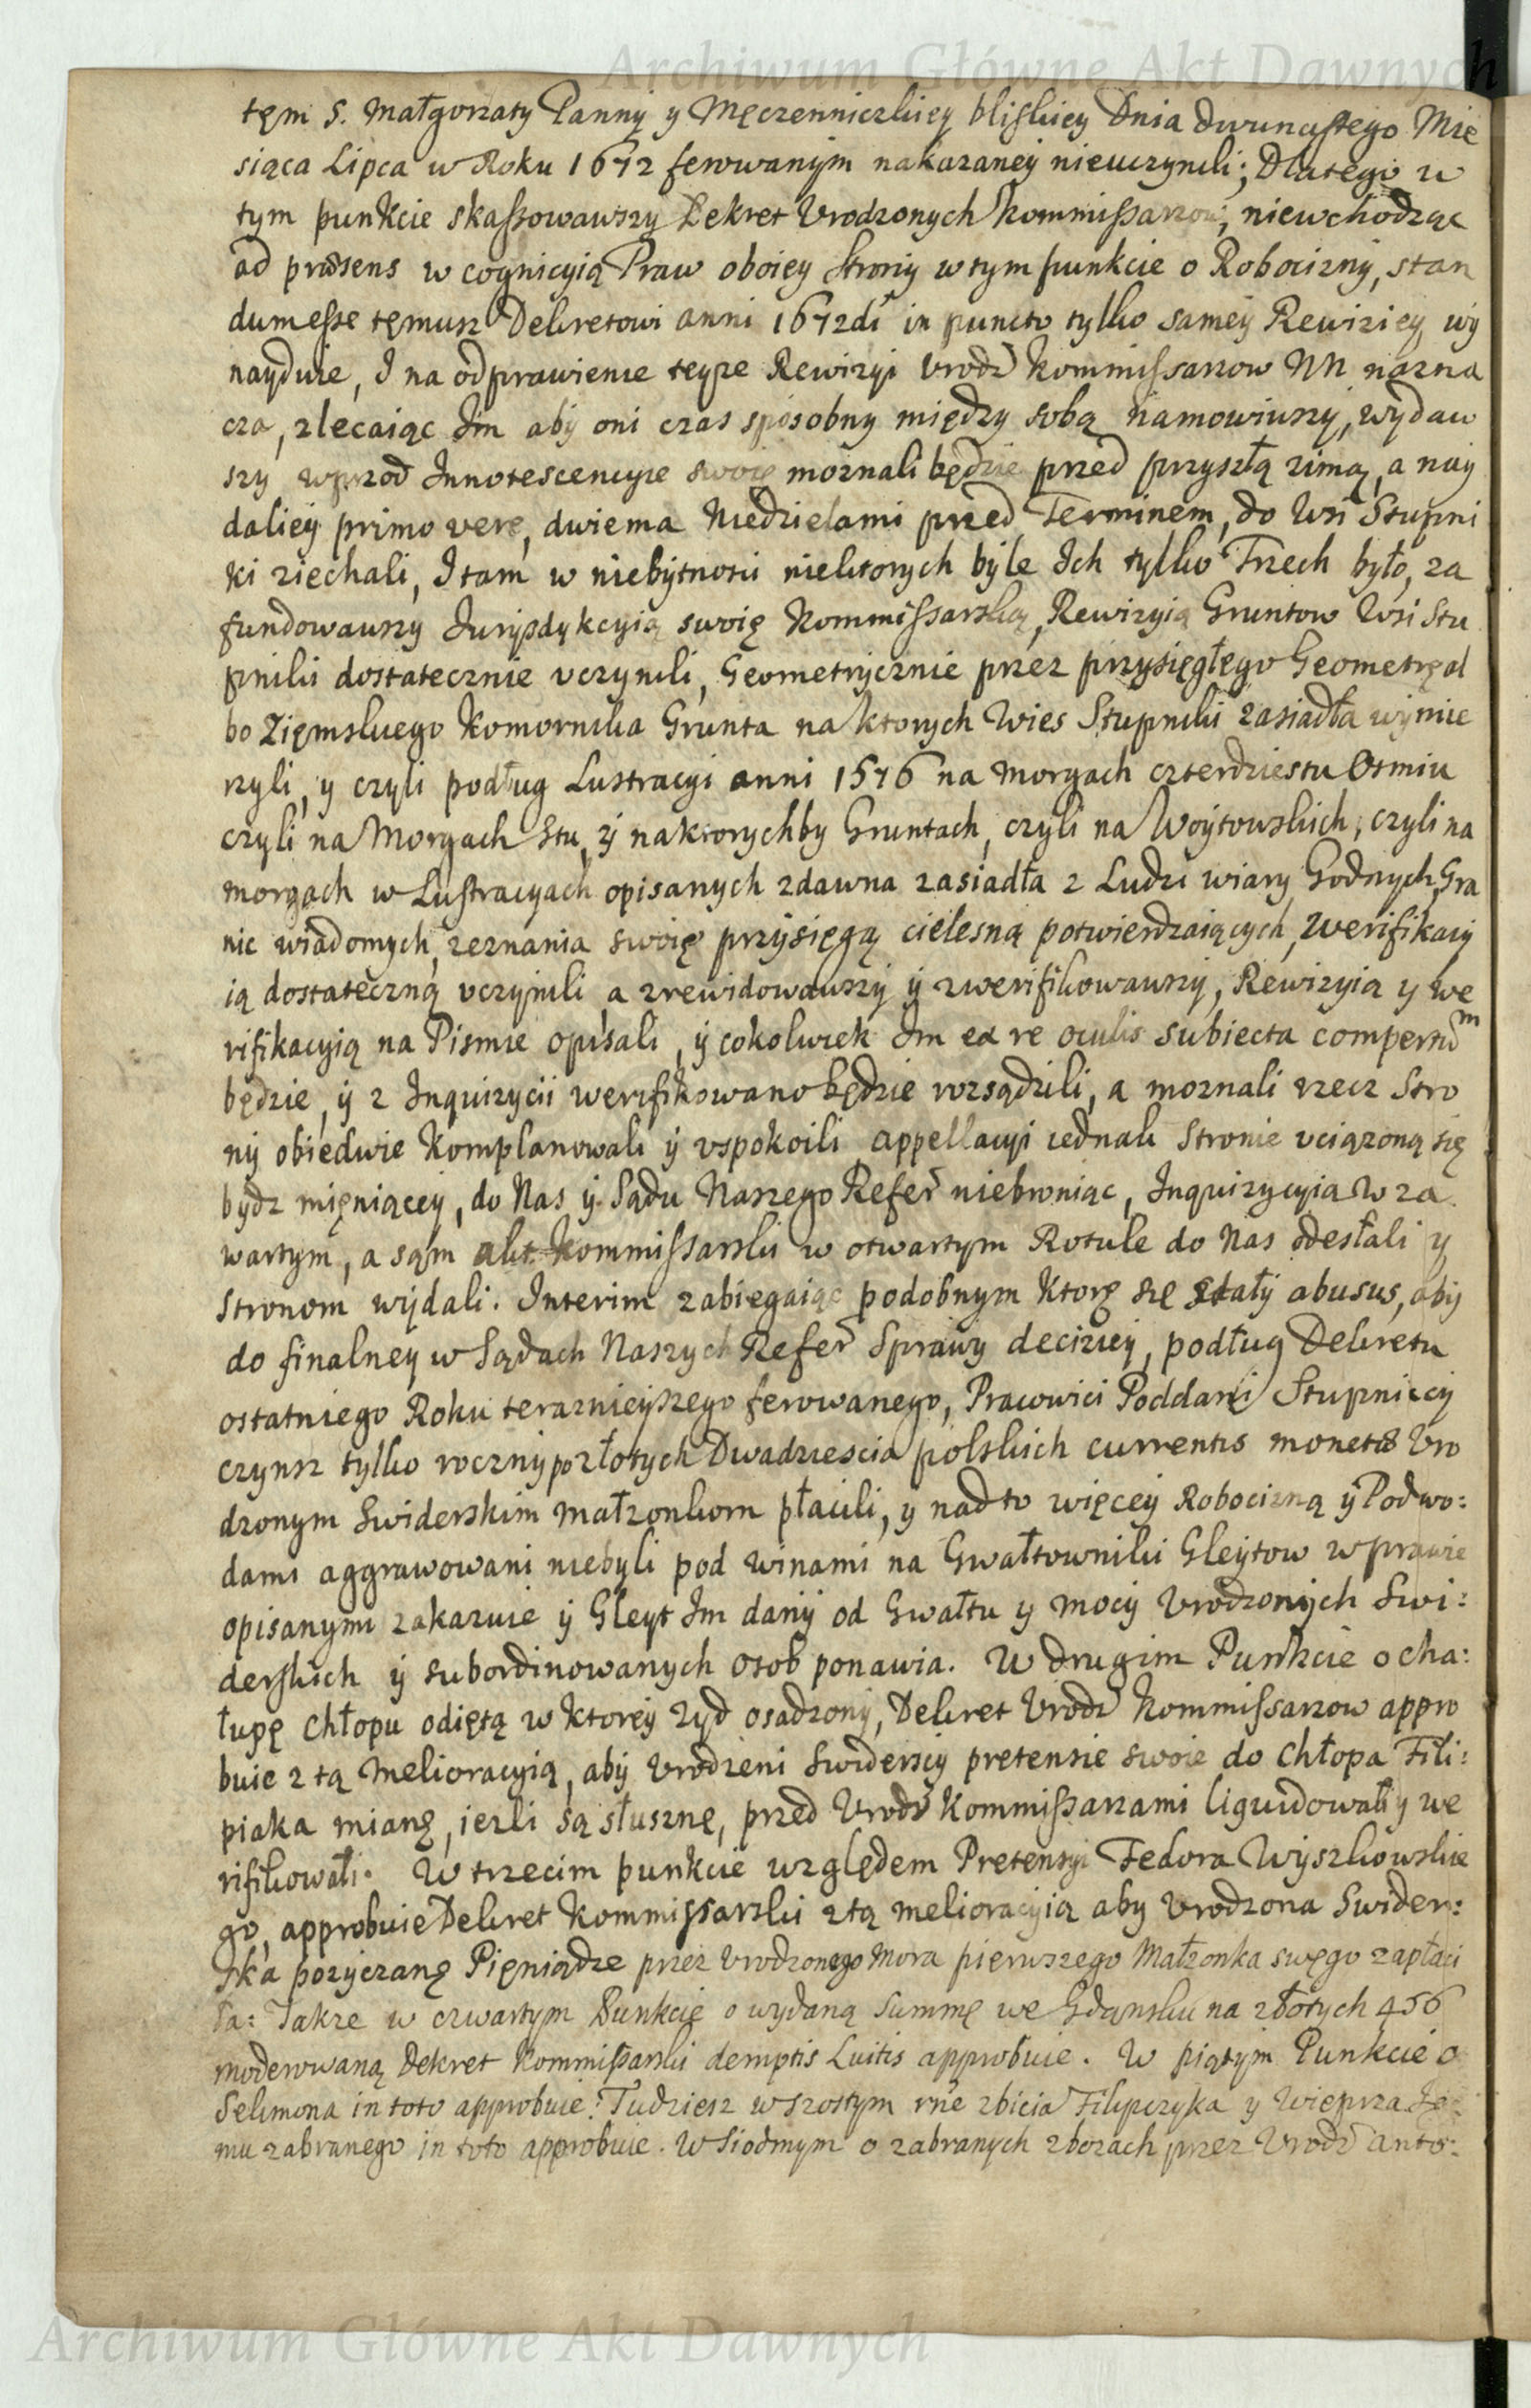 Archiwum Główne Akt Dawnych
tęm S. Małgorzaty Panny y Męczenniczkiey bliskiey Dnia dwunastego Mie
siąca Lipca w Roku 1672 ferowanym nakazaney nieuczynili; Dlatego w
tym punkcie skassowawszy Dekret Vrodzonych Kommissarzow, niewchodząc
ad præsens w cognicyią Praw oboiey Strony wtym punkcie o Robocizny, stan
dumesse temusz Dekretowi anni 1672di in puncto tylko samey Rewiziey wy
nayduie, I na odprawienie teyze Rewizyi Vrodz Kommissarzow NN nazna
cza, zlecaiąc Im aby oni czas sposobny między sobą namowiwszy, wydaw
szy wprzod Innotescencyie swoię moznali będzie przed przyszłą zimą, a nay
daliey primo vere, dwiema Niedzielami przed Terminem, do Wsi Stupni
ki ziechali, I tam w niebytnosci niektorych byle Ich tylko Trzech było, za
fundowawszy Iurysdykcyią swoię Kommissarską, Rewizyią Gruntow Wsi Stu
pniki dostatecznie vczynili, Geometrycznie przez przysięgłego Geometrę al
bo Ziemskiego Komornika Grunta na ktorych Wies Stupniki zasiadła wymie
rzyli, y czyli podług Lustracyi anni 1576 na morgach czterdziestu Osmiu
czyli na Morgach Stu, y naktorychby Gruntach, czyli na Woytowskich, czyli na
morgach w Lustracyach opisanych zdawna zasiadła z Ludzi wiary Godnych, Gra
nic wiadomych, zeznania swoię przysięgą cielesną potwierdzaiących, zwerifikacy
ią dostateczną vczynili, a zrewidowawszy y zwerifikowawszy, Rewizyią y we
rifikacyią na Pismie opisali, y cokolwiek Im ex re oculis subiecta compertum
będzie, y z Inquizycii werifikowano będzie rozsądzili, a moznali rzecz Stro
ny obiedwie Komplanowali y vspokoili appellacyi iednak Stronie vciązoną się
bydz mięniącey, do Nas y Sądu Naszego Refer niebroniąc, Inquizycyią w za
wartym, a sąm akt Kommissarski w otwartym Rotule do Nas odesłali y
Stronom wydali. Interim zabiegaiąc podobnym Ktorę się stały abusus, aby
do finalney w Sądach Naszych Refer Sprawy deciziey, podług Dekretu
ostatniego Roku terazniejszego ferowanego, Pracowici Poddani Stupniccy
czynsz tylko roczny po złotych Dwadziescia polskich currentis monetæ Vro
dzonym Swiderskim małzonkom płacili, y nadto więcey Robocizną y Podwo:
dami aggrawowani niebyli pod winami na Gwałtowniki Gleytow w prawie
opisanymi zakazuie y Gleyt Im dany od Gwałtu y mocy Vrodzonych Swi:
derskich y subordinowanych osob ponawia. W drugim Punkcie o cha:
łupę chłopu odiętą w ktorey Zyd osadzony, Dekret Vrodz Kommissarzow appro
buie z tą Melioracyią, aby Vrodzeni Swiderscy pretensie swoie do chłopa Fili:
piaka mianę, iezli są słusznę, przed Vrodz Kommissarzami liquidowali y we
rifikowali. W trzecim punkcie względem Pretensyi Fedora Wyszkowskie
go, approbuie Dekret Kommissarski ztą melioracyią aby Vrodzona Swider:
ska pozyczanę Pięniądze przez Vrodzonego Mora pierwszego Małzonka swęgo zapłaci
ła: Takze w czwartym Punkcie o wydaną Summę we Gdansku na złotych 456
moderowaną Dekret Kommissarski demptis Luitis approbuie. W piątym Punkcie o
Selimona in toto approbuie. Tudziesz w szostym rne zbicia Filipczyka y Wieprza Je:
mu zabranego in toto approbuie. W Siodmym o zabranych zbozach przez Vrodz Anto:
Archiwum Główne Akt Dawnych